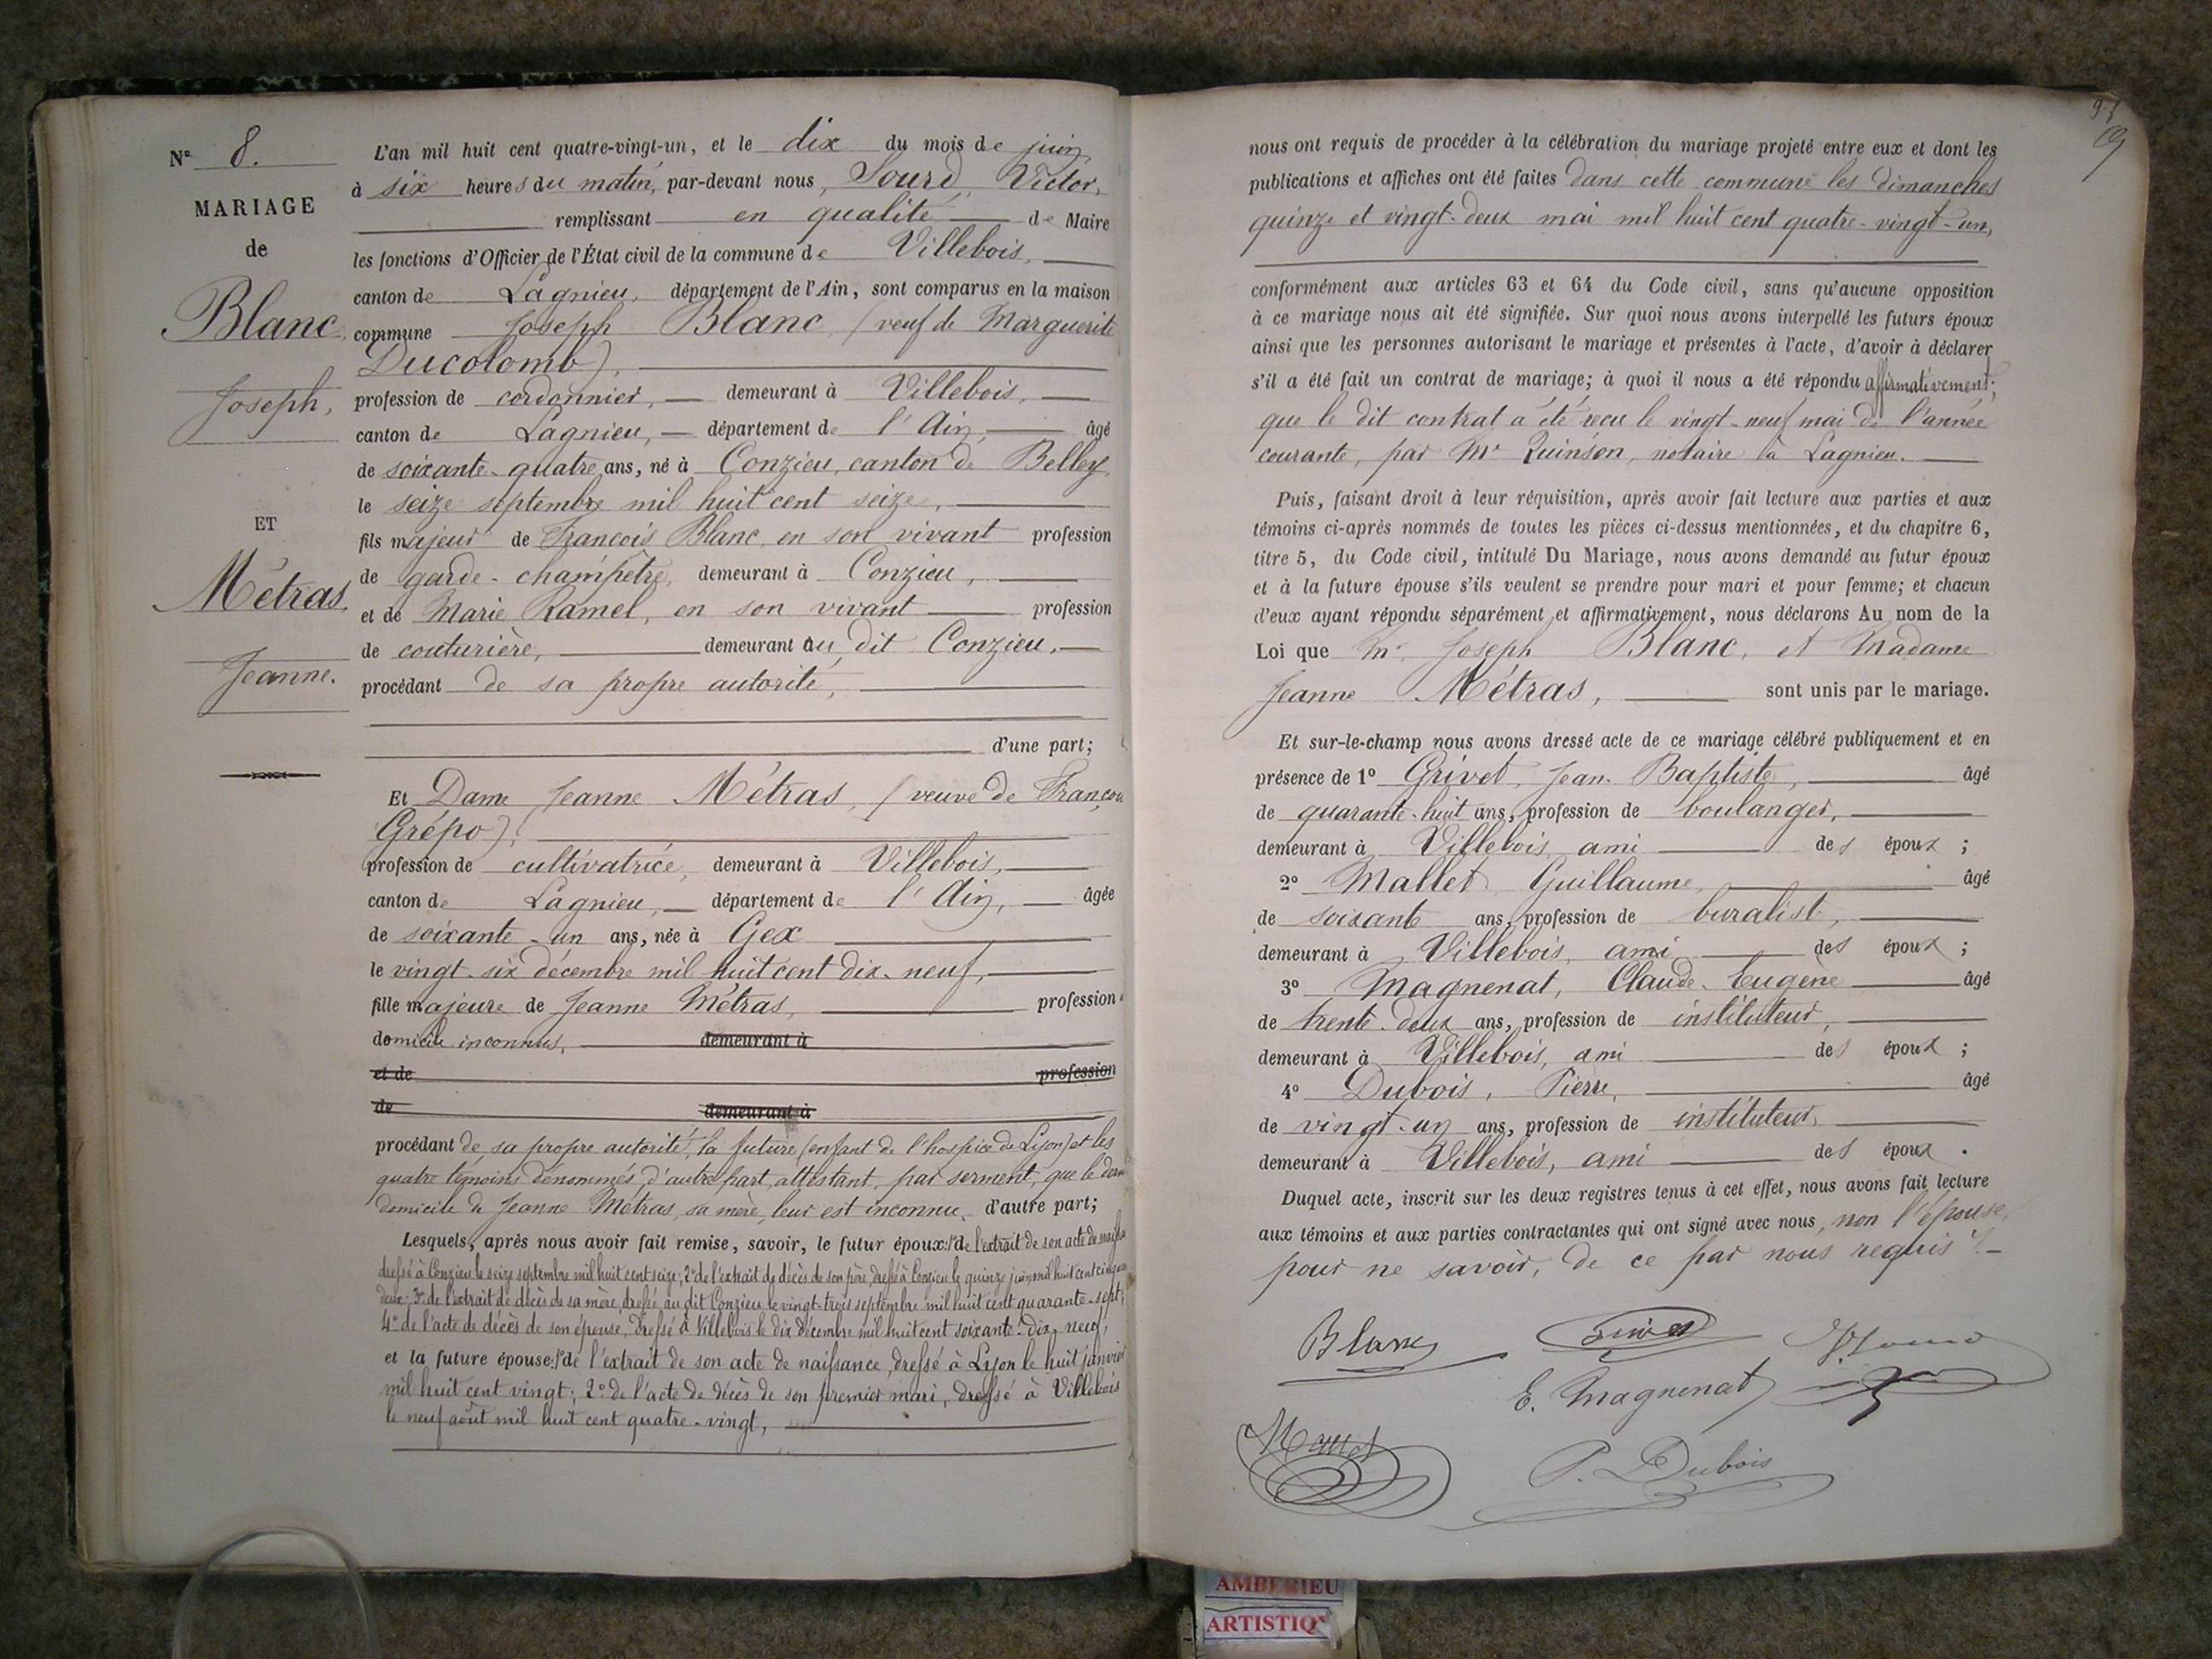 N° 8.
MARIAGE
de
Blanc
Joseph,
ET
Métras
Jeanne.
L'an mil huit cent quatre-vingt-un, et le dix du mois de juin
à six heures du matin, par-devant nous, Sourd, Victor,
remplissant en qualité de Maire
les fonctions d'Officier de l'État civil de la commune de Villebois,
canton de Lagnieu, département de l'Ain, sont comparus en la maison
commune Joseph Blanc, (veuf de Marguerite
Ducolomb),
profession de cordonnier, demeurant à Villebois,
canton de Lagnieu, département de l'Ain, âgé
de soixante-quatre ans, né à Conzieu, canton de Belley
le seize septembre mil huit cent seize,
fils majeur de François Blanc, en son vivant profession
de garde-champêtre, demeurant à Conzieu,
et de Marie Ramel, en son vivant profession
de couturière, demeurant au dit Conzieu,
procédant de sa propre autorité,
d'une part;
Et Dame Jeanne Métras, (veuve de François
Grépo),
profession de cultivatrice, demeurant à Villebois,
canton de Lagnieu, département de l'Ain, âgée
de soixante-un ans, née à Gex
le vingt-six décembre mil huit cent dix-neuf,
fille majeure de Jeanne Métras, profession
domicile inconnus, demeurant à
et de profession
de demeurant à
procédant de sa propre autorité, la future (enfant de l'hospice de Lyon) et les
quatre témoins dénommés d'autre part, attestant, par serment, que le dern
domicile de Jeanne Métras, sa mère, leur est inconnu, d'autre part;
Lesquels, après nous avoir fait remise, savoir, le futur époux: 1° de l'extrait de son acte de naissance
dressé à Conzieu le seize septembre mil huit cent seize; 2° de l'extrait de décès de son père, dressé à Conzieu le quinze juin mil huit cent cinquante
deux; 3° de l'extrait de décès de sa mère, dressé au dit Conzieu le vingt-trois septembre mil huit cent quarante-sept;
4° de l'acte de décès de son épouse, dressé à Villebois le dix décembre mil huit cent soixante-dix-neuf;
et la future épouse: 1° de l'extrait de son acte de naissance, dressé à Lyon le huit janvier
mil huit cent vingt; 2° de l'acte de décès de son premier mari, dressé à Villebois
le neuf août mil huit cent quatre-vingt,
nous ont requis de procéder à la célébration du mariage projeté entre eux et dont les
publications et affiches ont été faites dans cette commune les dimanches
quinze et vingt-deux mai mil huit cent quatre-vingt-un,
conformément aux articles 63 et 64 du Code civil, sans qu'aucune opposition
à ce mariage nous ait été signifiée. Sur quoi nous avons interpellé les futurs époux
ainsi que les personnes autorisant le mariage et présentes à l'acte, d'avoir à déclarer
s'il a été fait un contrat de mariage; à quoi il nous a été répondu affirmativement;
que le dit contrat a été reçu le vingt-neuf mai de l'année
courante, par Mr Quinson, notaire à Lagnieu.
Puis, faisant droit à leur réquisition, après avoir fait lecture aux parties et aux
témoins ci-après nommés de toutes les pièces ci-dessus mentionnées, et du chapitre 6,
titre 5, du Code civil, intitulé Du Mariage, nous avons demandé au futur époux
et à la future épouse s'ils veulent se prendre pour mari et pour femme; et chacun
d'eux ayant répondu séparément et affirmativement, nous déclarons Au nom de la
Loi que Mr. Joseph Blanc, et Madame
Jeanne Métras, sont unis par le mariage.
Et sur-le-champ nous avons dressé acte de ce mariage célébré publiquement et en
présence de 1° Grivet, Jean-Baptiste, âgé
de quarante-huit ans, profession de boulanger,
demeurant à Villebois, ami des époux ;
2° Mallet Guillaume, âgé
de soixante ans, profession de buraliste,
demeurant à Villebois, ami des époux ;
3° Magnenat, Claude-Eugène âgé
de trente-deux ans, profession de instituteur,
demeurant à Villebois, ami des époux ;
4° Dubois, Pierre, âgé
de vingt-un ans, profession de instituteur,
demeurant à Villebois, ami des époux .
Duquel acte, inscrit sur les deux registres tenus à cet effet, nous avons fait lecture
aux témoins et aux parties contractantes qui ont signé avec nous, non l'épouse,
pour ne savoir, de ce par nous requis.
Blanc
E. Magnenat
Mallet
P. Dubois
AMBERIEU
ARTISTIQ